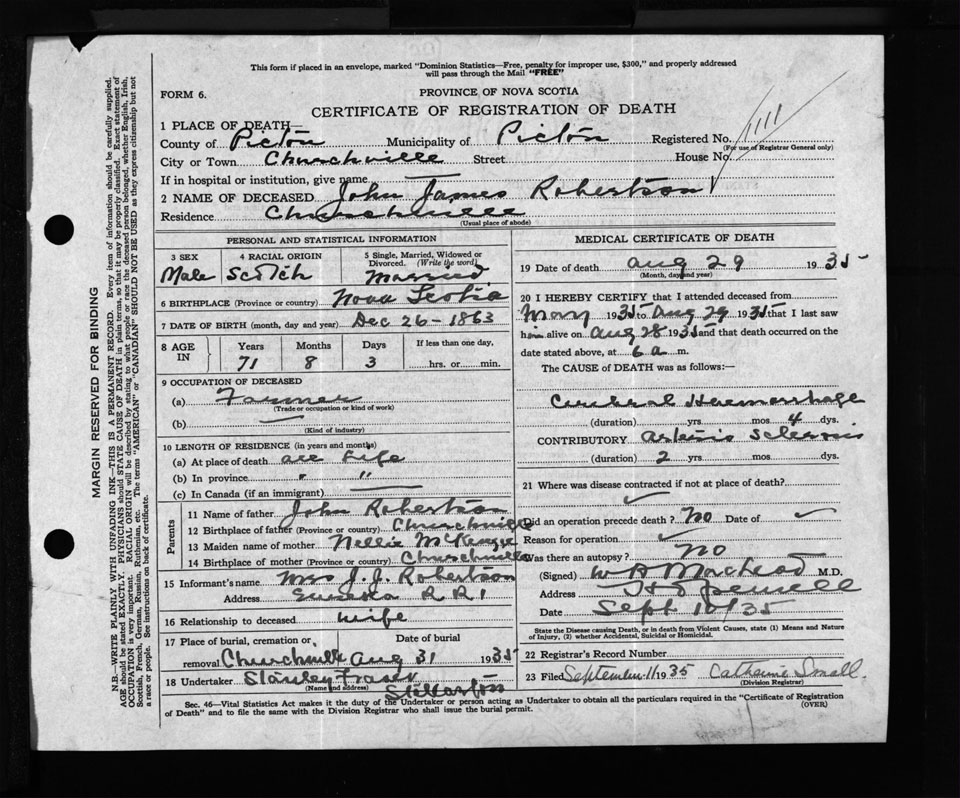 This form if placed in an envelope, marked "Dominion Statistics—Free, penalty for improper use, $300," and properly addressed
will pass through the Mail "FREE"
FORM 6.
PROVINCE OF NOVA SCOTIA
CERTIFICATE OF REGISTRATION OF DEATH
1 PLACE OF DEATH—
County of Pictou Municipality of Pictou Registered No. 1111
(For use of Registrar General only)
City or Town Churchville Street House No.
If in hospital or institution, give name
2 NAME OF DECEASED John James Robertson
Residence Churchville
(Usual place of abode)
PERSONAL AND STATISTICAL INFORMATION
3 SEX 4 RACIAL ORIGIN 5 Single, Married, Widowed or Divorced. (Write the word)
Male Scotch Married
6 BIRTHPLACE (Province or country) Nova Scotia
7 DATE OF BIRTH (month, day and year) Dec 26-1863
8 AGE IN Years Months Days If less than one day,
71 8 3 hrs. or min.
9 OCCUPATION OF DECEASED
(a) Farmer
(Trade or occupation or kind of work)
(b)
(Kind of industry)
10 LENGTH OF RESIDENCE (in years and months)
(a) At place of death all Life
(b) In province " "
(c) In Canada (if an immigrant)
Parents
11 Name of father John Robertson
12 Birthplace of father (Province or country) Churchville
13 Maiden name of mother Nellie McKenzie
14 Birthplace of mother (Province or country) Churchville
15 Informant's name Mrs J. J. Robertson
Address Eureka R R 1
16 Relationship to deceased wife
17 Place of burial, cremation or removal Date of burial
Churchville Aug 31 1935
18 Undertaker Stanley Fraser
(Name and address) Stellarton
MEDICAL CERTIFICATE OF DEATH
19 Date of death Aug 29 1935
(Month, day and year)
20 I HEREBY CERTIFY that I attended deceased from
May 1935 to Aug 29 1935 that I last saw
him alive on Aug 28 1935 and that death occurred on
date stated above, at 6 a m.
The CAUSE OF DEATH was as follows:—
Cerebral Haemorrhage
(duration) yrs mos 4 dys.
CONTRIBUTORY Arterio Sclerosis
(duration) 2 yrs mos dys.
21 Where was disease contracted if not at place of death?
Did an operation precede death? No Date of
Reason for operation
Was there an autopsy? No
(Signed) MacLeod M.D.
Address
Date Sept 10/35
State the Disease causing Death, or in death from Violent Causes, state (1) Means and Nature
of Injury, (2) whether Accidental, Suicidal or Homicidal.
22 Registrar's Record Number
23 Filed September 11 1935 Catherine Small.
(Division Registrar)
Sec. 46—Vital Statistics Act makes it the duty of the Undertaker or person acting as Undertaker to obtain all the particulars required in the "Certificate of Registration
of Death" and to file the same with the Division Registrar who shall issue the burial permit.
(OVER)
MARGIN RESERVED FOR BINDING
N.B.—WRITE PLAINLY WITH UNFADING INK—THIS IS A PERMANENT RECORD. Every item of information should be carefully supplied.
AGE should be stated EXACTLY. PHYSICIANS should STATE CAUSE OF DEATH in plain terms, so that it may be properly classified. Exact statement of
OCCUPATION is very important. RACIAL ORIGIN will be described by stating to what people or race the deceased person belonged, whether English, Irish,
Scottish, French, German, Russian, Ruthenian, etc. The terms "AMERICAN" or "CANADIAN" SHOULD NOT BE USED as they express citizenship but not
a race or people. See instructions on back of certificate.